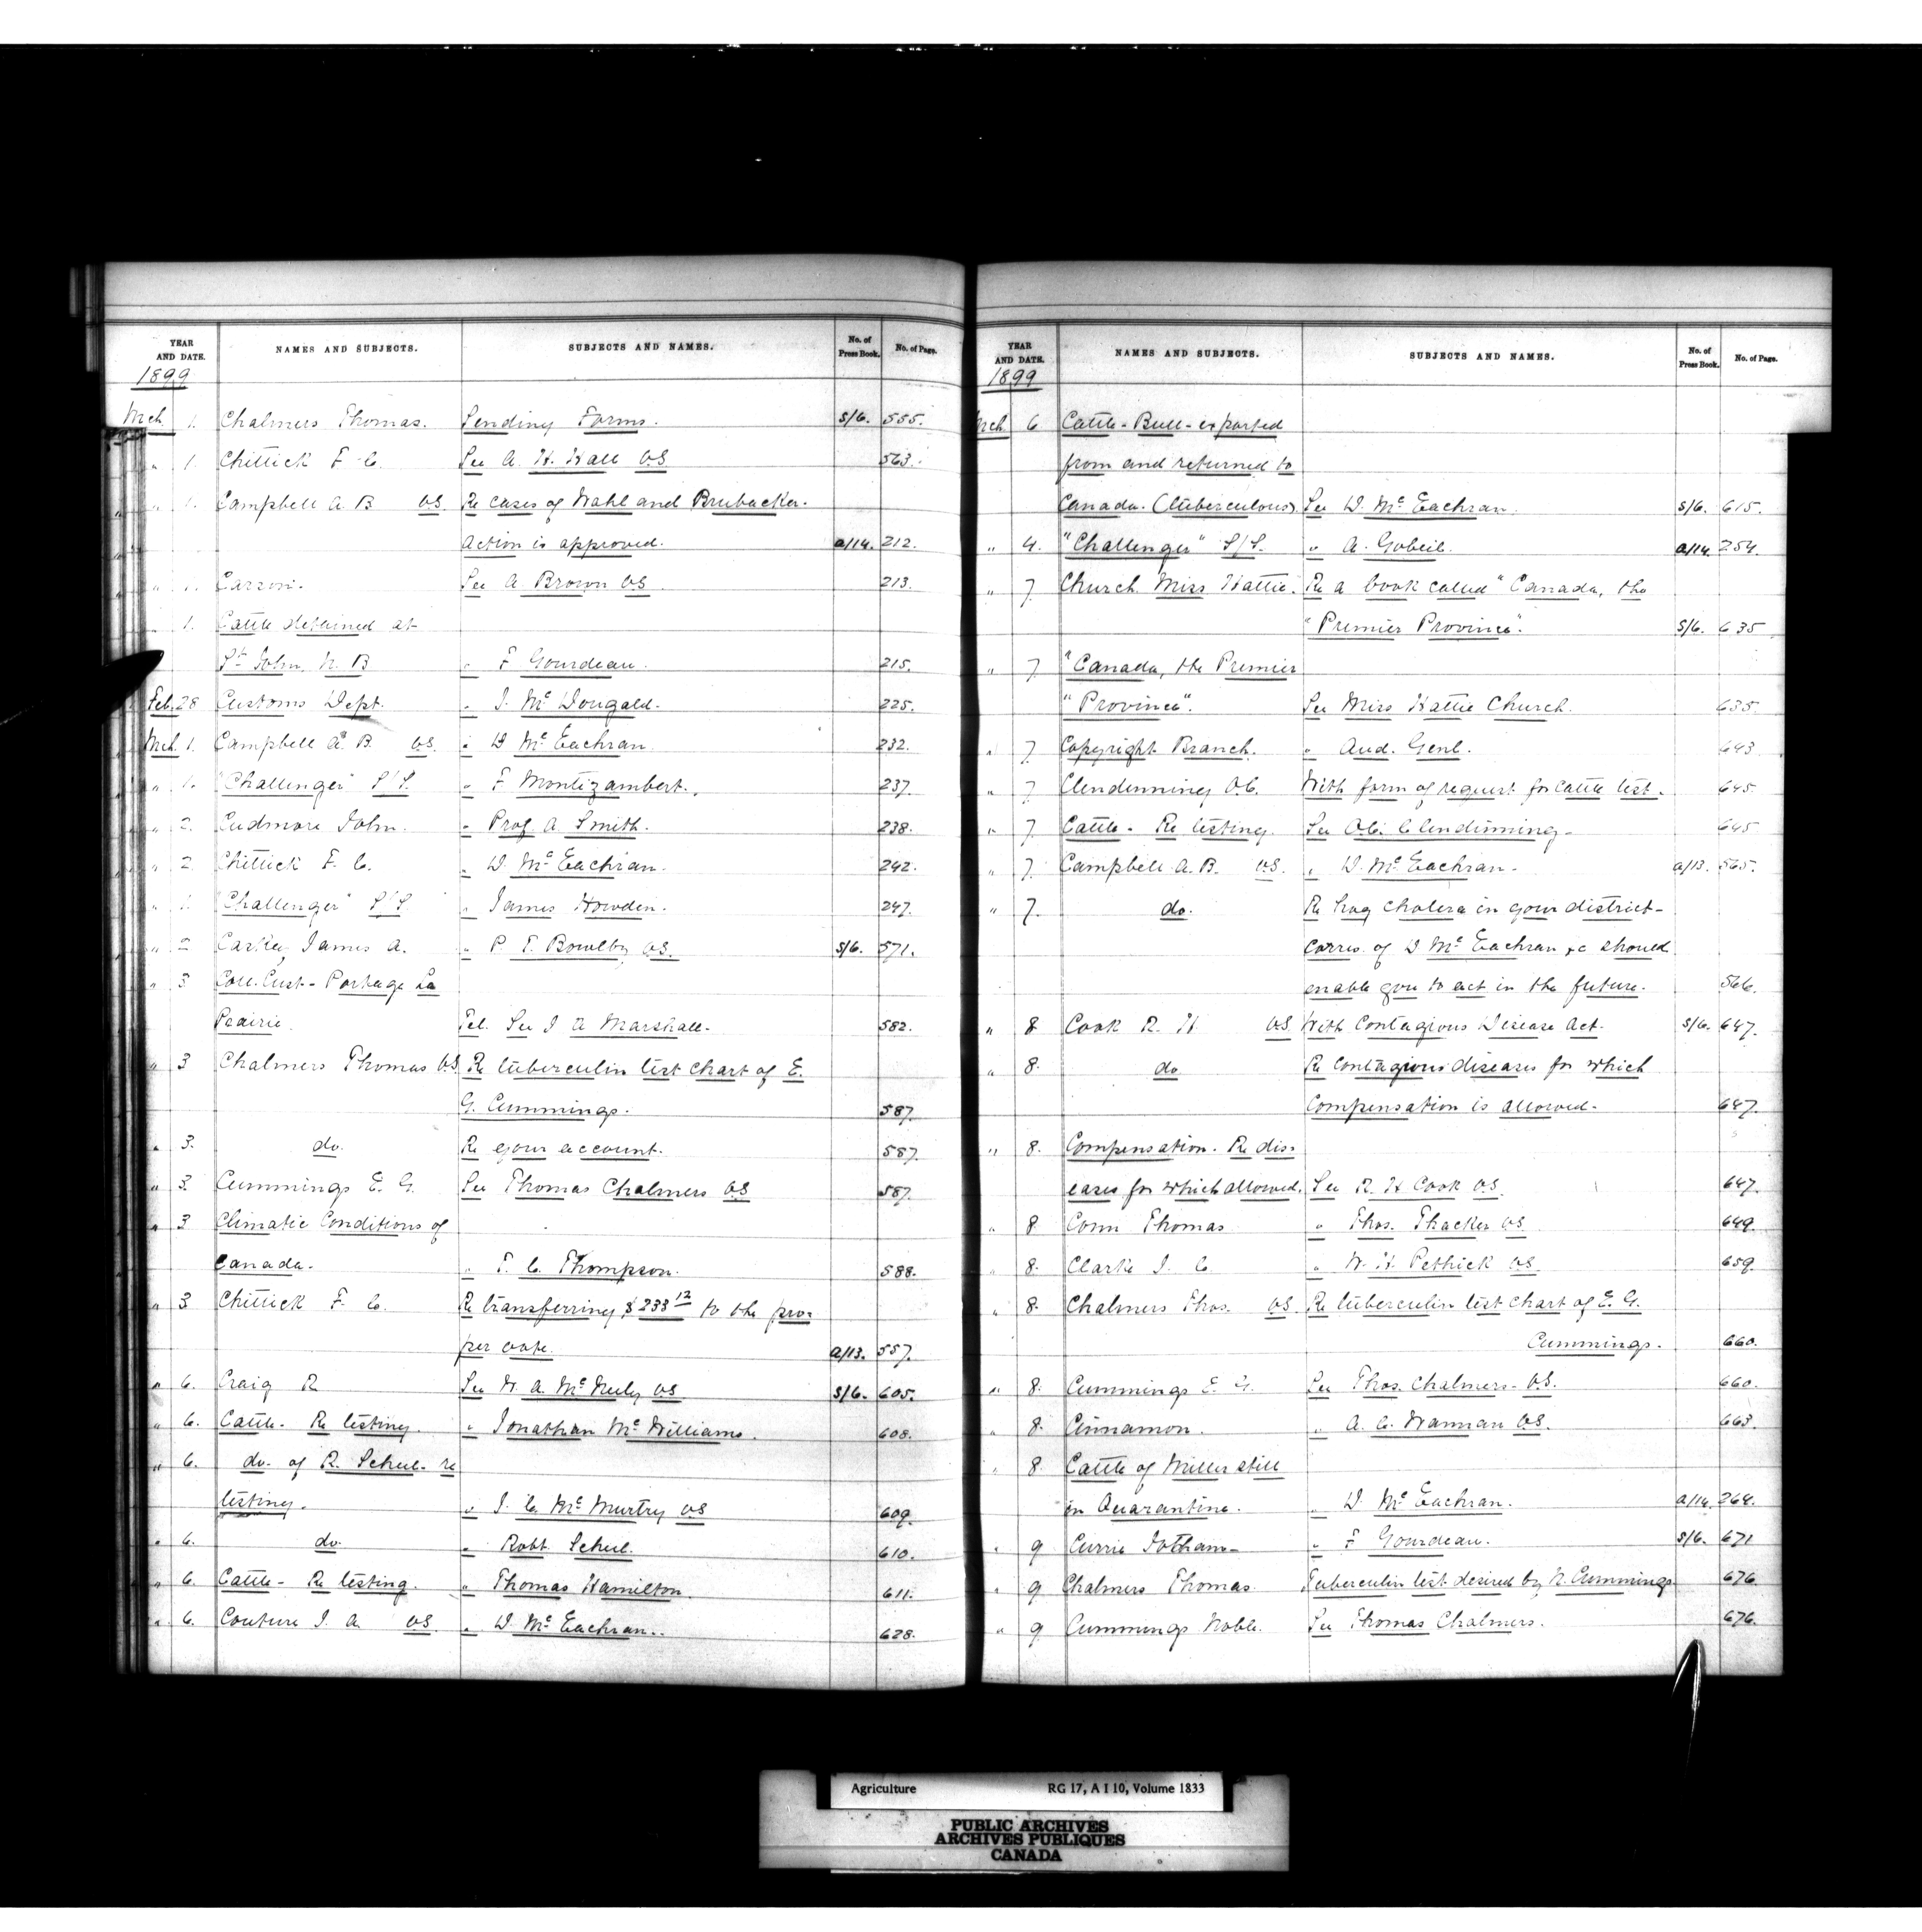 YEAR AND DATE. NAMES AND SUBJECTS. SUBJECTS AND NAMES. No. of Press Book. No. of Page.
1899
Mch. 1. Chalmers Thomas. Sending Forms. S/6. 555.
" 1. Chittick F. C. See A. H. Hall VS 563.
" 1. Campbell A. B VS. Re cases of Wahl and Brubacker.
Action is approved. a/14. 212.
" 1. Carson. See A. Brown VS 213.
" 1. Cattle detained at
St. John, N. B " F Gourdeau. 215.
Feb. 28 Customs Dept. " J. McDougald. 225.
Mch. 1. Campbell A. B. VS. " D McEachran. 232.
" 1. "Challenger" S/S. " F Montizambert. 237.
" 2. Cudmore John. " Prof. A. Smith. 238.
" 2. Chittick F. C. " D McEachran. 242.
" 1. "Challenger" S/S. " James Howden. 247.
" 2 Carkey, James A. " P. T. Bowlby VS. S/6. 571.
" 3 Coll. Cust - Portage La
Prairie. Tel. See J A Marshall. 582.
" 3 Chalmers Thomas VS. Re tuberculin test chart of E.
G. Cummings. 587.
" 3. do. Re your account. 587.
" 3. Cummings E. G. See Thomas Chalmers VS 587.
" 3 Climatic Conditions of
Canada. " T. C. Thompson. 588.
" 3 Chittick F. C. Re transferring $233 12 to the pro=
per vote. a/13. 557.
" 6. Craig R See W. A. McNeily VS S/6. 605.
" 6. Cattle - Re testing. " Jonathan McWilliams. 608.
" 6. do. of R. Schul- re
testing. " J. C. McMurtry VS 609.
" 6. do. " Robt. Schul. 610.
" 6. Cattle - Re testing. " Thomas Hamilton. 611.
" 6. Couture J. A. VS. " D McEachran. 628.
YEAR AND DATE. NAMES AND SUBJECTS. SUBJECTS AND NAMES. No. of Press Book. No. of Page.
1899
Mch. 6 Cattle - Bull - exported
from and returned to
Canada. (tuberculous) See D. McEachran. S/6. 615.
" 4. "Challenger" S/S. " A. Gobeil. a/14 254.
" 7. Church Miss Hattie. Re a book called "Canada, the
"Premier Province". S/6. 635.
" 7 "Canada, the Premier
"Province". See Miss Hattie Church. 635.
" 7 Copyright Branch. " Aud. Genl. 643
" 7 Clendinning O.C. With form of request for cattle test. 645.
" 7. Cattle - Re testing. See O.C. Clendinning - 645
" 7. Campbell A. B. VS. " D. McEachran. a/13. 565.
" 7. do. Re hog cholera in your district -
corres. of D McEachran &c should
enable you to act in the future. 566.
" 8 Cook R. H VS With Contagious Disease Act. S/6. 647.
" 8. do Re contagious diseases for which
compensation is allowed. 647.
" 8. Compensation. Re dis=
eases for which allowed. See R. H Cook VS. 647.
" 8 Conn Thomas " Thos. Thacker VS 649.
" 8. Clarke J. C. " W. H. Pethick VS. 659.
" 8. Chalmers Thos. VS. Re tuberculin test chart of E. G.
Cummings. 660.
" 8. Cummings E. G. See Thos. Chalmers - VS. 660.
" 8. Cinnamon. " A. C. Wanman VS. 663.
" 8. Cattle of Miller still
in Quarantine. " D. McEachran. a/14. 264.
" 9 Currie Jotham - " F Gourdeau. S/6. 671
" 9 Chalmers Thomas. Tuberculin test desired by N. Cummings 676
" 9 Cummings Noble. See Thomas Chalmers. 676.
Agriculture RG 17, A I 10, Volume 1833
PUBLIC ARCHIVES
ARCHIVES PUBLIQUES
CANADA